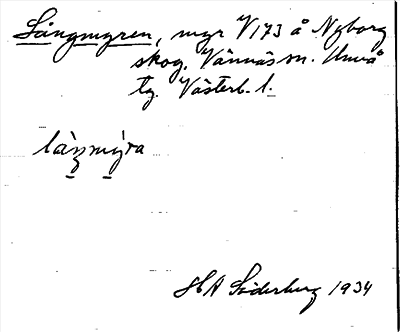 Långmyren, myr V 173 å Nyborg
skog. Vännäs sn. Umeå
tg. Västerb. l.
làŋmýra
HA Söderberg 1934